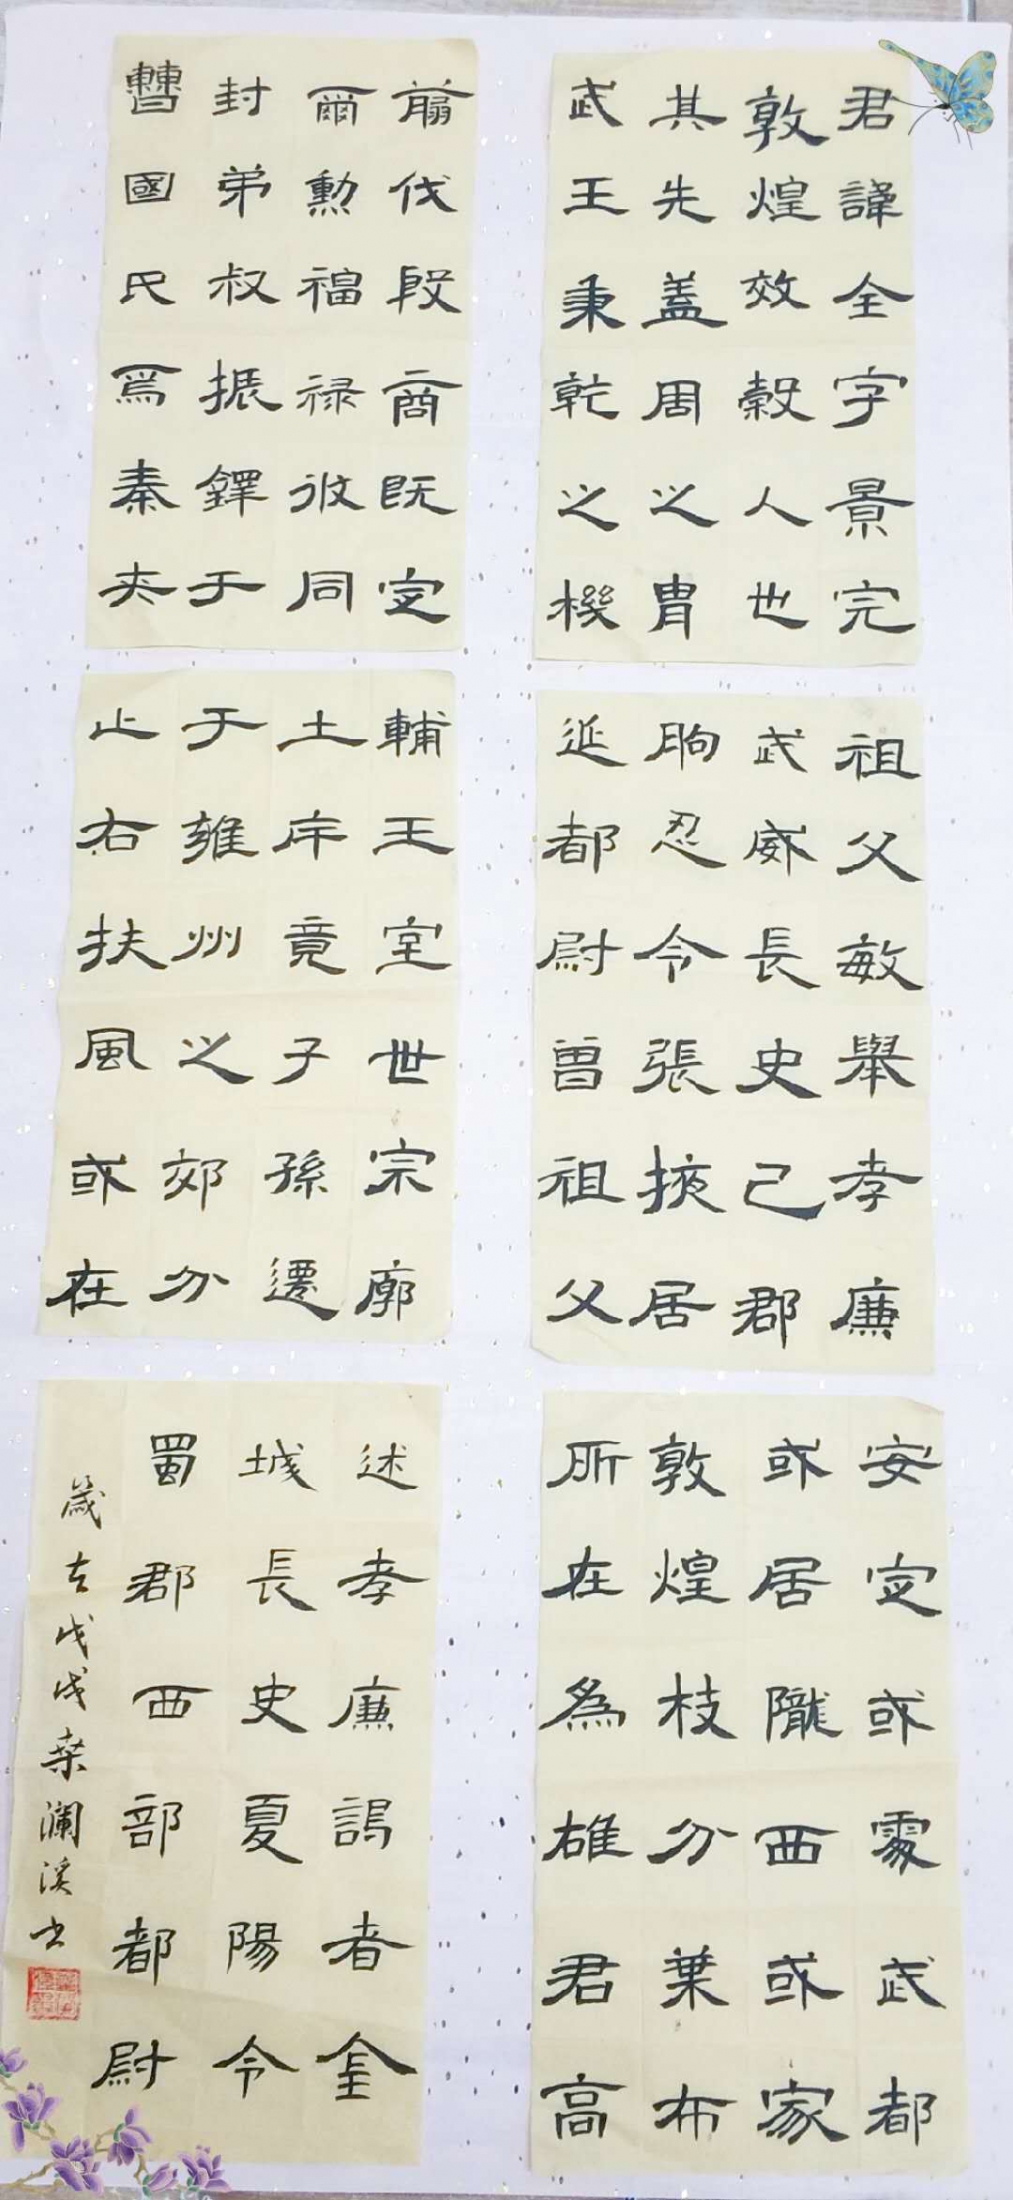 君諱全字景完
敦煌效穀人也
其先蓋周之胄
武王秉乾之機
翦伐殷商既定
爾勳福禄攸同
封弟叔振鐸于
曹國氏焉秦夾
輔王室世宗廓
土斥竟子孫遷
于雍州之郊分
止右扶風或在
安定或處武都
或居隴西或家
敦煌枝分葉布
所在為雄君高
祖父敏舉孝廉
武威長史巴郡
朐忍令張掖居
延都尉曾祖父
述孝廉謁者金
城長史夏陽令
蜀郡西部都尉
歲在戊戌桒瀾溪书